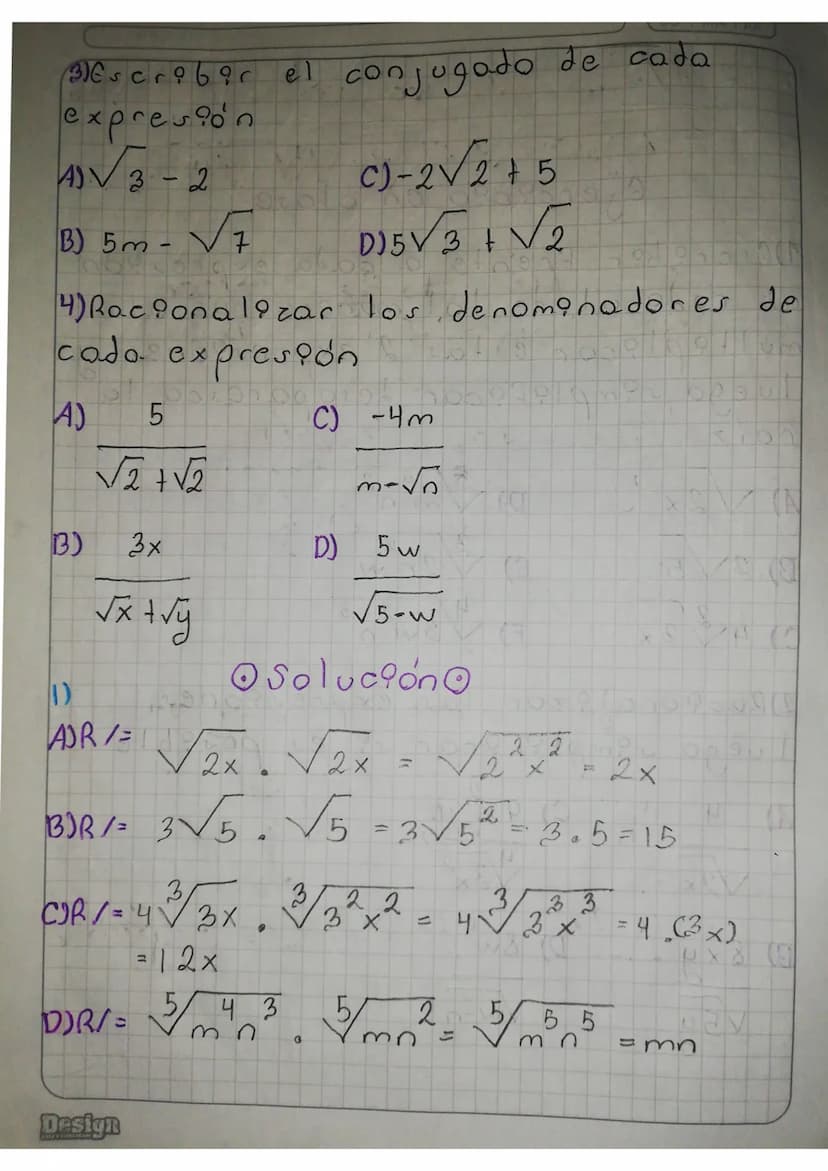 3) Escribir el conjugado de cada
expresión
A) √3 - 2 C) -2√2 + 5
B) 5m - √7 D) 5√3 + √2
4) Racionalizar los denominadores de
cada expresión
A) 5/(√2 + √2) C) -4m/(m-√n)
B) 3x/(√x + √y) D) 5w/√(5-w)
⊙Solución⊙
1)
A) R/= √(2x) . √(2x) = √(2²x²) = 2x
B) R/= 3√5 . √5 = 3√(5²) = 3.5 = 15
C) R/= 4∛(3x) . ∛(3²x²) = 4∛(3³x³) = 4.(3x)
= 12x
D) R/= ⁵√(m⁴n³) . ⁵√(mn²) = ⁵√(m⁵n⁵) = mn
Design